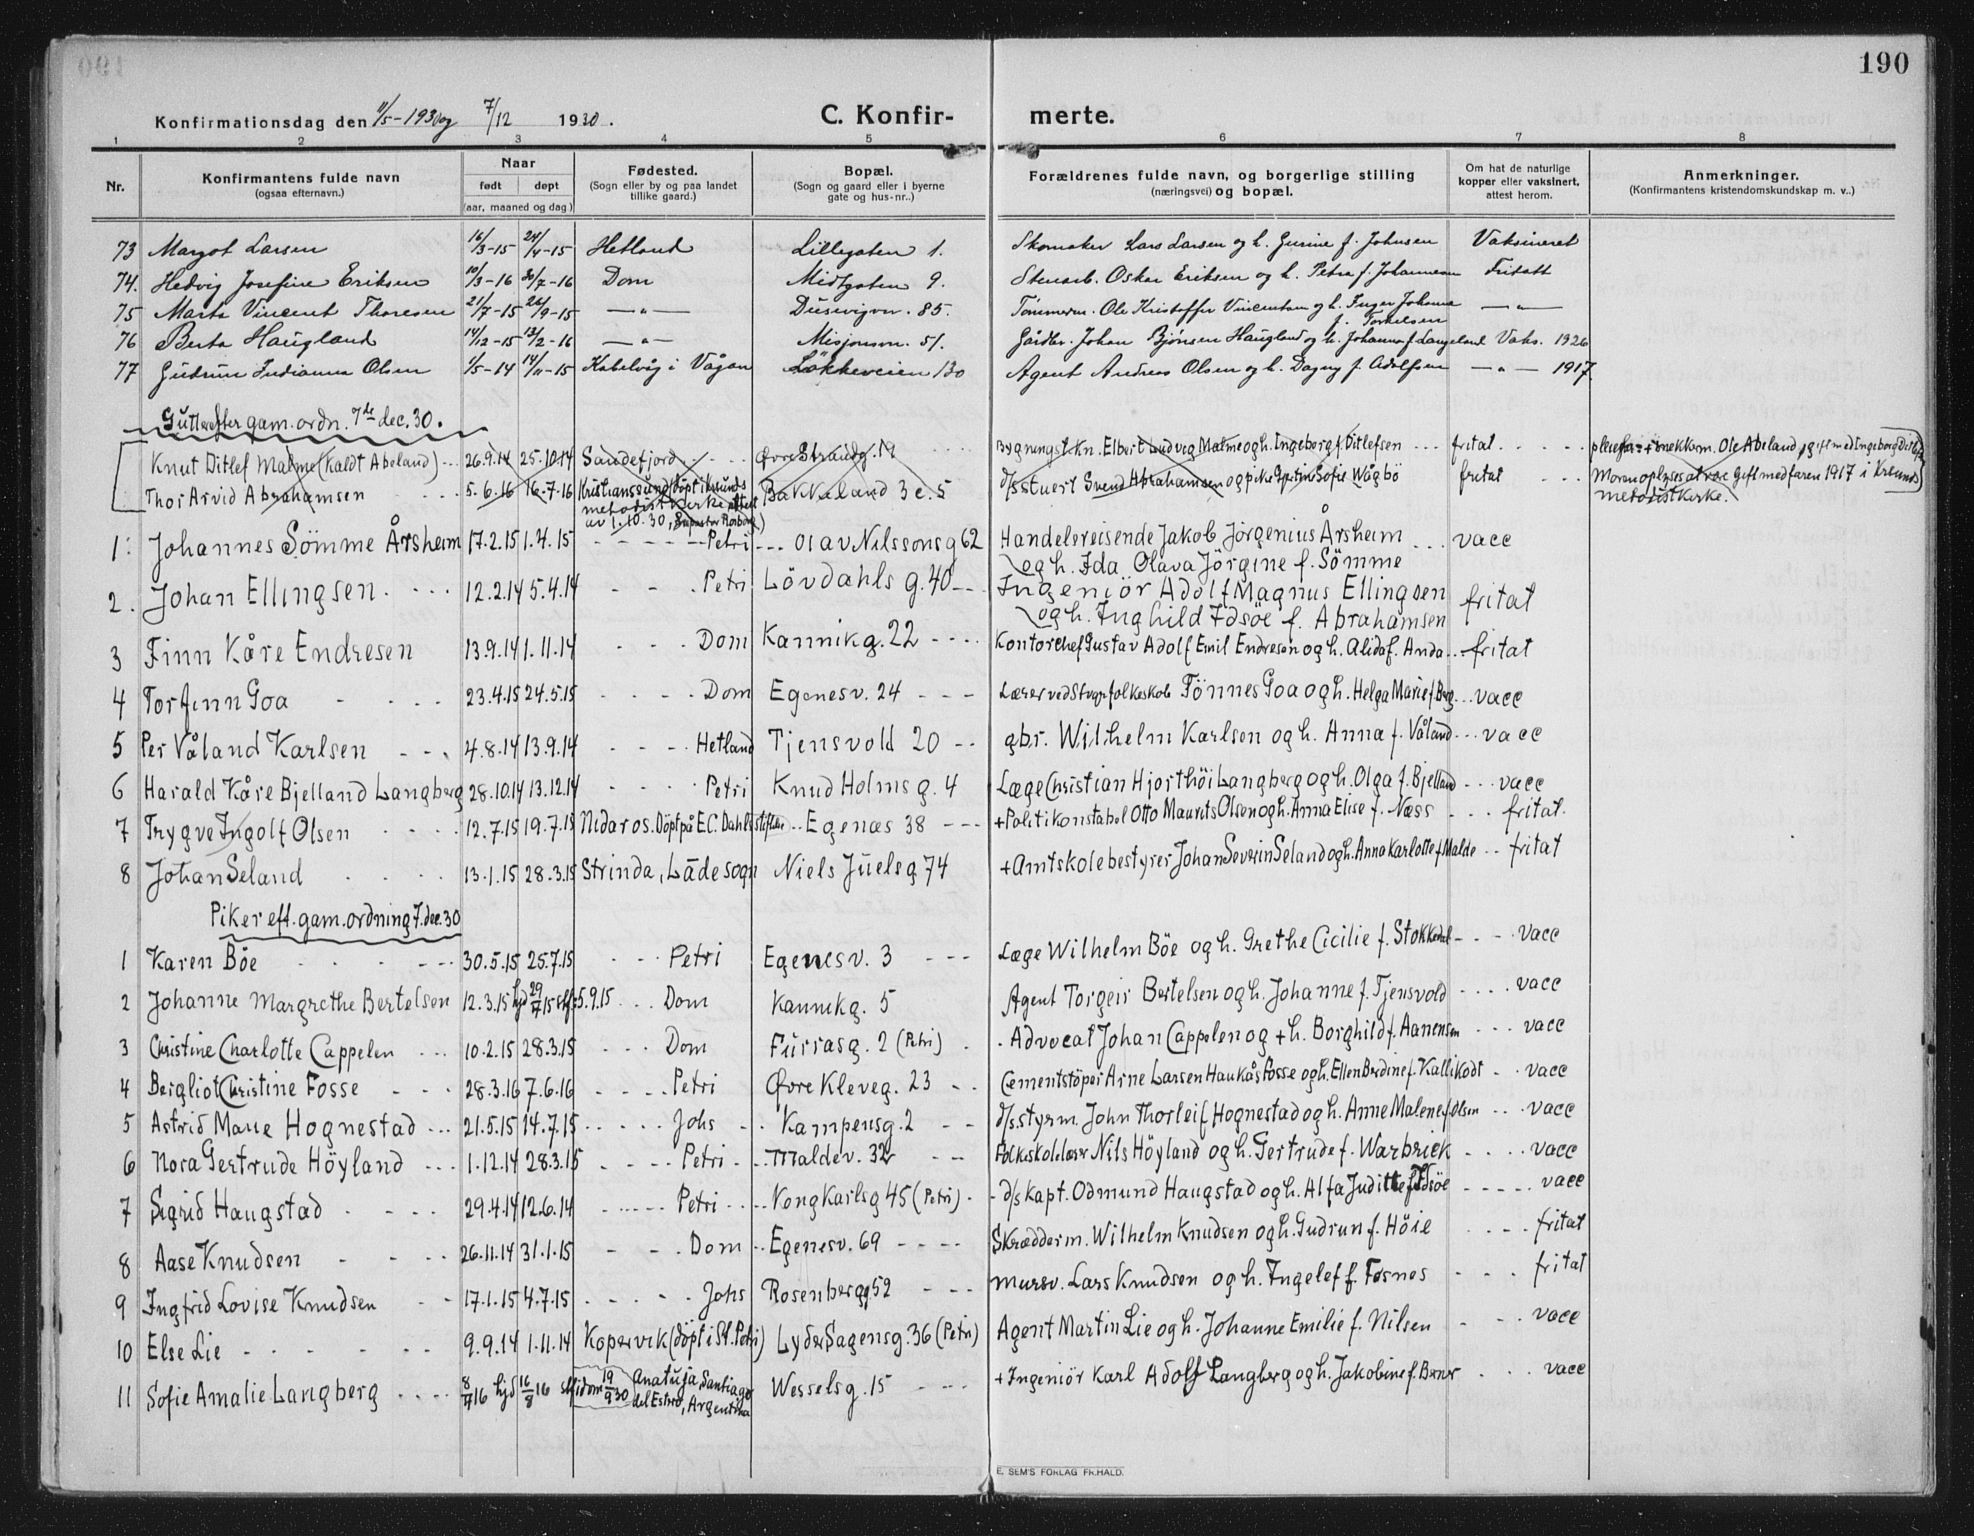 190
Konfirmationsdag den 11/5-1930 og 7/12 1930.
C. Konfirmerte.
1 2 3 4 5 6 7 8
Nr.
Konfirmantens fulde navn
(ogsaa efternavn.)
Naar
født døpt
(aar, maaned og dag.)
Fødested.
(Sogn eller by og paa landet
tillike gaard.)
Bopæl.
(Sogn og gaard eller i byerne
gate og hus-nr..)
Forældrenes fulde navn, og borgerlige stilling
(næringsvei) og bopæl.
Om hat de naturlige
kopper eller vaksinert,
attest herom.
Anmerkninger.
(Konfirmantens kristendomskundskap m. v..)
73 Margot Larsen 16/3-15 24/4-15 Hetland Lillegaten 1. Skomaker Lars Larsen og h. Gurine f. Johnsen Vaksineret
74. Hedvig Josefine Eriksen 10/3-16 30/7-16 Dom Midtgaten 9. Stenarb. Oskar Eriksen og h. Petra f. Johannesen Fritatt
75 Marta Vincent Thoresen 21/7-15 26/9-15 —„— Dusavigvn. 85. Tømmerm. Ole Kristoffer Vincentsen og h. Inger Johanne —„—
f. Torkelsen
76 Berta Haugland 14/12-15 13/2-16 —„— Misjonsv. 51. Gårdbr. Johan Bjønsen Haugland og h. Johanna f. Langeland Vaks. 1926
77 Gudrun Indianna Olsen 1/5-14 14/11-15 Kabelvåg i Vågan Løkkeveien 130 Agent Andreas Olsen og h. Dagny f. Adolfsen —„— 1917.
Gutter efter gam. ordn. 7de dec. 30.
Knut Ditlef Malme (kaldt Abeland) 26.9.14 25.10.14 Sandefjord Øvre Strandg. 19 Bygningstekn. Elbert Ludvig Malme og h. Ingeborg f. Ditlefsen fritat
Thor Arvid Abrahamsen 5.6.16 16.7.16 Kristianssund (döpt i Krsunds Bakkeland 3 c. 5 d/sstuert Svend Abrahamsen og pike Gjertine Sofie Wågbö fritat Moren oplyses at være gift med faren 1917 i Krsunds
metodistkirke attest metodistkirke.
av 1.10.30,
1. Johannes Sömme Årsheim 17.2.15 1.4.15 Petri Olav Nilssons g 62 Handelsreisende Jakob Jörgenius Årsheim vacc
og h. Ida Olava Jörgine f. Sömme
2. Johan Ellingsen 12.2.14 5.4.14 Petri Lövdahls g. 40 Ingeniör Adolf Magnus Ellingsen fritat
og h. Inghild Idsöe f. Abrahamsen
3 Finn Kåre Endresen 13.9.14 1.11.14 Dom Kannikg. 22 Kontorchef Gustav Adolf Emil Endresen og h. Alida f. Anda fritat
4 Torfinn Goa 23.4.15 24.5.15 Dom Egenesv. 24 Lærer ved Stvgr folkeskole Tönnes Goa og h. Helga Marie f Berg vacc
5 Per Våland Karlsen 4.8.14 13.9.14 Hetland Tjensvold 20 gbr. Wilhelm Karlsen og h. Anna f. Våland vacc
6 Harald Kåre Bjelland Langberg 28.10.14 13.12.14 Petri Knud Holms g. 4 Læge Christian Hjorthöi Langberg og h. Olga f. Bjelland vacc
7 Trygve Ingolf Olsen 12.7.15 19.7.15 Nidaros. Döpt på E.C. Dahls stiftelse Egenæs 38 + Politikonstabel Otto Maurits Olsen og h. Anna Elise f. Næss fritat.
8 Johan Seland 13.1.15 28.3.15 Strinda, Låde sogn Niels Juels g 74 + Amtskolebestyrer Johan Severin Seland og h. Anna Karlotte f Malde fritat
Piker eft. gam. ordning 7. dec. 30
1 Karen Böe 30.5.15 25.7.15 Petri Egenesv. 3 Læge Wilhelm Böe og h. Grethe Cicilie f. Stokkedal vacc
2 Johanne Margrethe Bertelsen 12.3.15 hjd 29/4 15 stf 5.9.15 Dom Kannikg. 5 Agent Torgeir Bertelsen og h. Johanne f. Tjensvold vacc
3 Christine Charlotte Cappelen 10.2.15 28.3.15 Dom Furrasg. 2 (Petri) Advocat Johan Cappelen og + h. Borghild f. Aanensen vacc
4 Bergliot Christine Fosse 28.3.16 7.6.16 Petri Øvre Kleveg. 23 Cementstöper Arne Larsen Haukås Fosse og h. Ellen Berdine f. Kallikodt vacc
5 Astrid Marie Hognestad 21.5.15 14.7.15 Johs Kampensg. 2 d/s.styrm. John Thorleif Hognestad og h. Anne Malene f. Olsen vacc
6 Nora Gertrude Höyland 1.12.14 28.3.15 Petri Maldev. 32 Folkeskolelærer Nils Höyland og h. Gertrude f. Warbrick vacc
7 Sigrid Haugstad 29.4.14 12.6.14 Petri Kong Karlsg 45 (Petri) d/s kapt. Odmund Haugstad og h. Alfa Juditte f Idsöe vacc
8 Aase Knudsen 26.11.14 31.1.15 Dom Egenesv. 69 Skrædderm. Wilhelm Knudsen og h. Gudrun f. Höie fritat
9 Ingfrid Lovise Knudsen 17.1.15 4.7.15 Johs Rosenbergg 52 Mursv. Lars Knudsen og h. Ingelef f. Fosnes fritat
10 Else Lie 9.9.14 1.11.14 Kopervik (döpt i St. Petri) Lyder Sagensg. 36 (Petri) Agent Martin Lie og h. Johanne Emilie f. Nilsen vacc
11 Sofie Amalie Langberg 8/4 16 hjd 16/8 16 stf i dom 19/9 30 Anatuja, Santiago Wesselsg. 15 + Ingeniör Karl Adolf Langberg og h. Jakobine f. Berner vacc
del Estero, Argentina
E. SEM'S FORLAG FR.HALD.